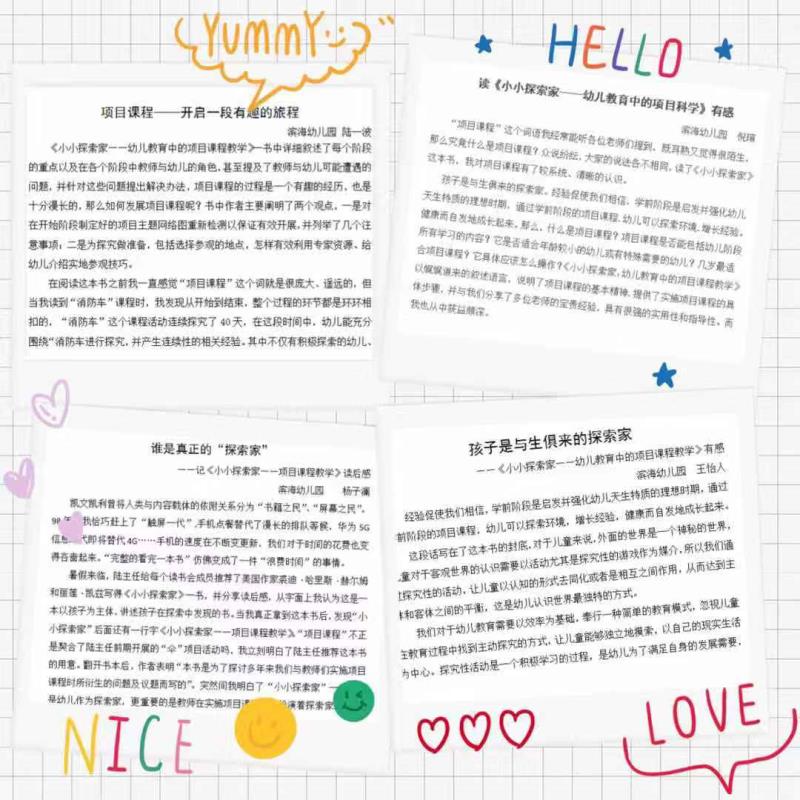 YUMMY
项目课程——开启一段有趣的旅程
滨海幼儿园 陆一波
《小小探索家——幼儿教育中的项目课程教学》一书中详细叙述了每个阶段
的重点以及在各个阶段中教师与幼儿的角色，甚至提及了教师与幼儿可能遭遇的
问题，并针对这些问题提出解决办法，项目课程的过程是一个有趣的经历，也是
十分漫长的，那么如何发展项目课程呢？书中作者主要阐明了两个观点，一是对
在开始阶段制定好的项目主题网络图重新检测以保证有效开展，并列举了几个注
意事项；二是为探究做准备，包括选择参观的地点，怎样有效利用专家资源、给
幼儿介绍实地参观技巧。
在阅读这本书之前我一直感觉“项目课程”这个词就是很庞大、遥远的，但
当我读到“消防车”课程时，我发现从开始到结束，整个过程的环节都是环环相
扣的，“消防车”这个课程活动连续探究了 40 天，在这段时间中，幼儿能充分
围绕“消防车进行探究，并产生连续性的相关经验。其中不仅有积极探索的幼儿、
HELLO
读《小小探索家——幼儿教育中的项目科学》有感
滨海幼儿园 倪瑢
“项目课程”这个词语我经常能听各位老师们提到，既耳熟又觉得很陌生，
那么究竟什么是项目课程？众说纷纭，大家的说法各不相同，读了《小小探索家》
这本书，我对项目课程有了较系统、清晰的认识。
孩子是与生俱来的探索家，经验促使我们相信，学前阶段是启发并强化幼儿
天生特质的理想时期，通过学前阶段的项目课程，幼儿可以探索环境，增长经验，
健康而自发地成长起来。那么，什么是项目课程？项目课程是否能包括幼儿阶段
所有学习的内容？它是否适合年龄较小的幼儿或有特殊需要的幼儿？几岁最适
合项目课程？它具体应该怎么操作？《小小探索家，幼儿教育中的项目课程教学》
以娓娓道来的叙述语言，说明了项目课程的基本精神，提供了实施项目课程的具
体步骤，并与我们分享了多位老师的宝贵经验，具有很强的实用性和指导性。而
我也从中获益颇深。
谁是真正的“探索家”
——记《小小探索家——项目课程教学》读后感
滨海幼儿园 杨子澜
凯文凯利曾将人类与内容载体的依附关系分为“书籍之民”、“屏幕之民”。
我恰巧赶上了“触屏一代”，手机点餐替代了漫长的排队等候，华为 5G
信息 代即将替代 4G……手机的速度在不断变更新，我们对于时间的花费也变
得吝啬起来。“完整的看完一本书”仿佛变成了一件“浪费时间”的事情。
暑假来临，陆主任给每个读书会成员推荐了美国作家裘迪·哈里斯·赫尔姆
和丽莲·凯兹写得《小小探索家》一书，并分享读后感，从字面上我认为这是一
本以孩子为主体，讲述孩子在探索中发现的书。当我真正拿到这本书后，发现“小
小探索家”后面还有一行字《小小探索家——项目课程教学》。“项目课程”不正
是契合了陆主任前期开展的“伞”项目活动吗，我立刻明白了陆主任推荐这本书
的用意。翻开书本后，作者表明“本书是为了探讨多年来我们与教师们实施项目
课程时所衍生的问题及议题而写的”。突然间我明白了“小小探索家”
是幼儿作为探索家，更重要的是教师在实施项目课 演着探索家
孩子是与生俱来的探索家
——《小小探索家——幼儿教育中的项目课程教学》有感
滨海幼儿园 王怡人
经验促使我们相信，学前阶段是启发并强化幼儿天生特质的理想时期，通过
前阶段的项目课程，幼儿可以探索环境，增长经验，健康而自发地成长起来。
这段话写在了这本书的封底，对于儿童来说，外面的世界是一个神秘的世界，
儿童对于客观世界的认识需要以活动尤其是探究性的游戏作为媒介，所以我们通
过探究性的活动，让儿童以认知的形式去同化或者是相互之间作用，从而达到主
体和客体之间的平衡，这是幼儿认识世界最独特的方式。
我们对于幼儿教育需要以效率为基础，奉行一种简单的教育模式，忽视儿童
在教育过程中找到主动探究的方式，让儿童能够独立地摸索，以自己的现实生活
为中心。探究性活动是一个积极学习的过程，是幼儿为了满足自身的发展需要，
NICE
LOVE